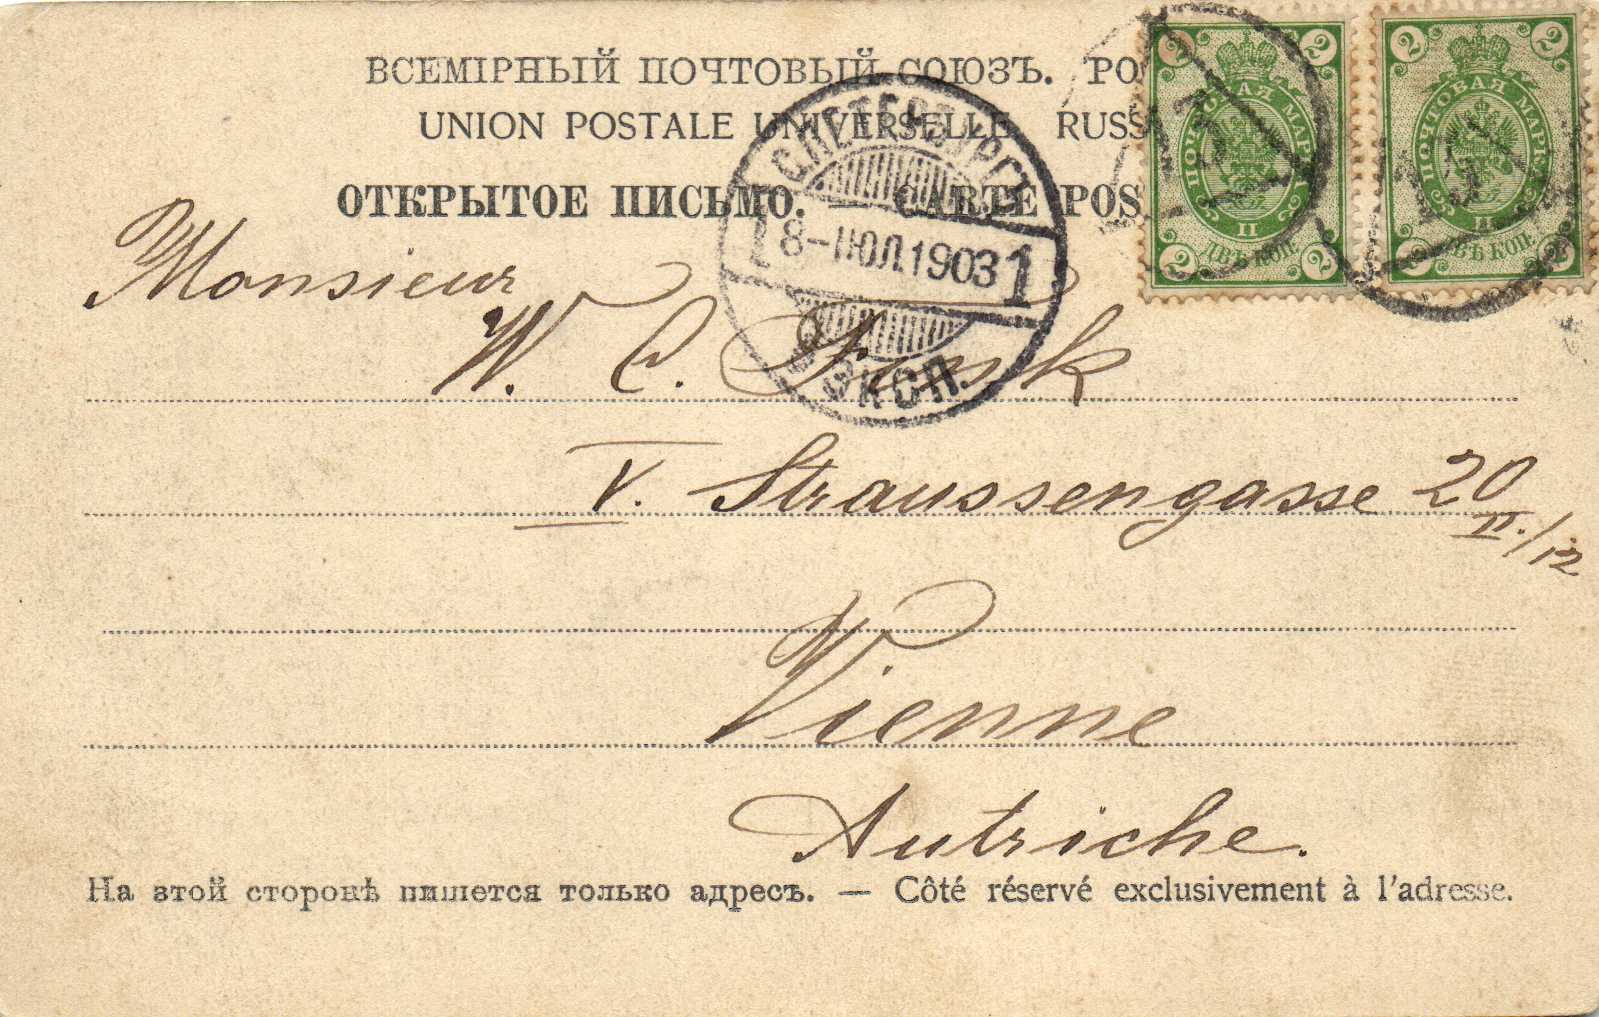 ВСЕМІРНЫЙ ПОЧТОВЫЙ СОЮЗЪ. РО
UNION POSTALE UNIVERSELLE. RUSS
ОТКРЫТОЕ ПИСЬМО. — CARTE POS
2 2
ПОЧТОВАЯ МАРКА
II
2 ДВѢ КОП. 2
2 2
ПОЧТОВАЯ МАРКА
II
2 ДВѢ КОП. 2
С.ПЕТЕРБУРГЪ
1 8-ІЮЛ.1903 1
ЭКСП.
Monsieur
W. C. Funk
V. Straussengasse 20
II./12
Vienne
Autriche.
На этой сторонѣ пишется только адресъ. — Côté réservé exclusivement à l'adresse.